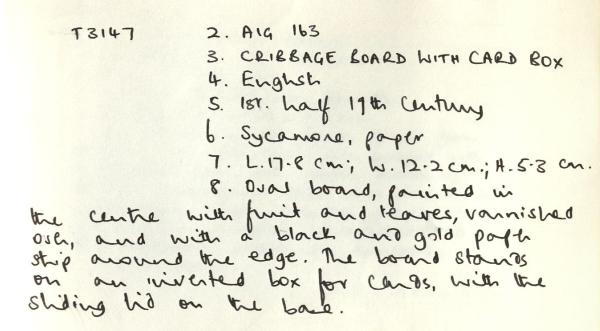 T3147 2. AIG 163
3. CRIBBAGE BOARD WITH CARD BOX
4. English
5. 1st. half 19th Century
6. Sycamore, paper
7. L.17.8 cm; W.12.2 cm.; H.5.3 cm.
8. Oval board, painted in
the centre with fruit and leaves, varnished
over, and with a black and gold paper
strip around the edge. The board stands
on an inverted box for cards, with the
sliding lid on the base.